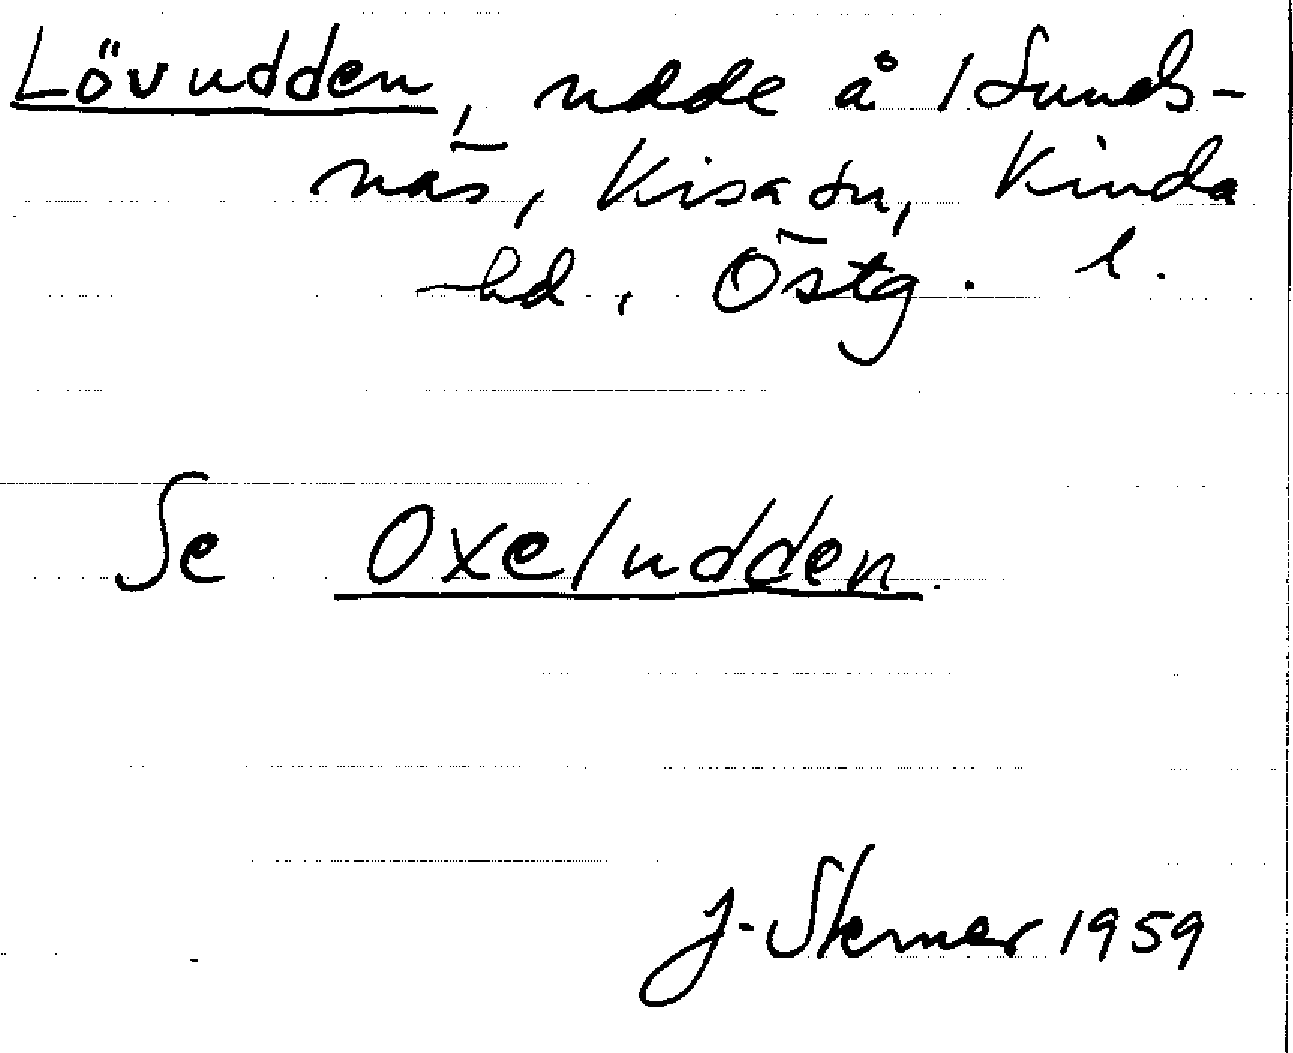 Lövudden, udde å 1 Sunds-
näs, Kisa sn, Kinda
hd, Östg. l.
Se Oxeludden.
J. Sterner 1959